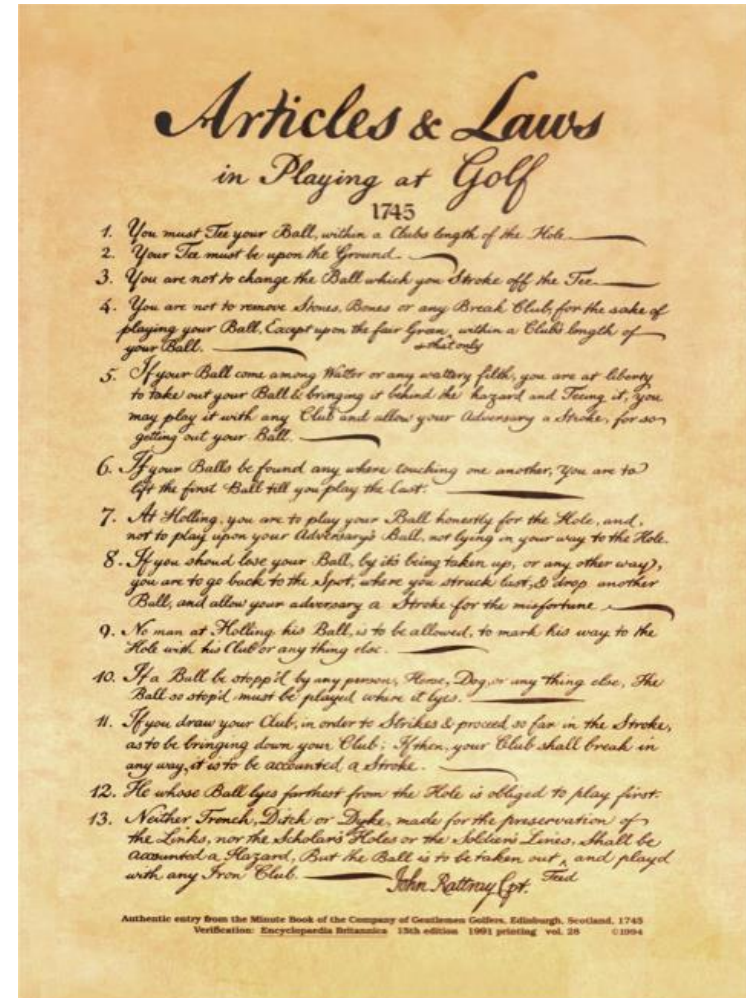 Articles & Laws
in Playing at Golf
1745
1. You must Tee your Ball, within a Clubs length of the Hole.
2. Your Tee must be upon the Ground.
3. You are not to change the Ball which you Stroke off the Tee.
4. You are not to remove Stones, Bones or any Break Club, for the sake of
playing your Ball, Except upon the fair Green, within a Club's length of
your Ball. & that only
5. If your Ball come among Watter or any wattery filth, you are at liberty
to take out your Ball & bringing it behind the hazard and Teeing it, you
may play it with any Club and allow your Adversary a Stroke, for so
getting out your Ball.
6. If your Balls be found any where touching one another, You are to
lift the first Ball till you play the last.
7. At Holling, you are to play your Ball honestly for the Hole, and,
not to play upon your Adversary's Ball, not lying in your way to the Hole.
8. If you should lose your Ball, by it's being taken up, or any other way,
you are to go back to the Spot, where you struck last, & drop another
Ball, and allow your adversary a Stroke for the misfortune
9. No man at Holling his Ball, is to be allowed, to mark his way to the
Hole with his Club or any thing else.
10. If a Ball be stopp'd by any person, Horse, Dog, or any thing else, The
Ball so stop'd must be played where it lyes.
11. If you draw your Club, in order to Strikes & proceed so far in the Stroke,
as to be bringing down your Club; If then, your Club shall break in
any way, it is to be accounted a Stroke.
12. He whose Ball lyes farthest from the Hole is obliged to play first.
13. Neither Trench, Ditch or Dyke, made for the preservation of
the Links, nor the Scholar's Holes or the Soldier's Lines, Shall be
accounted a Hazard, But the Ball is to be taken out ^ and play'd
with any Iron Club. John Rattray Cpt. Teed
Authentic entry from the Minute Book of the Company of Gentlemen Golfers, Edinburgh, Scotland, 1745
Verification: Encyclopaedia Britannica 15th edition 1991 printing vol. 28 ©1994